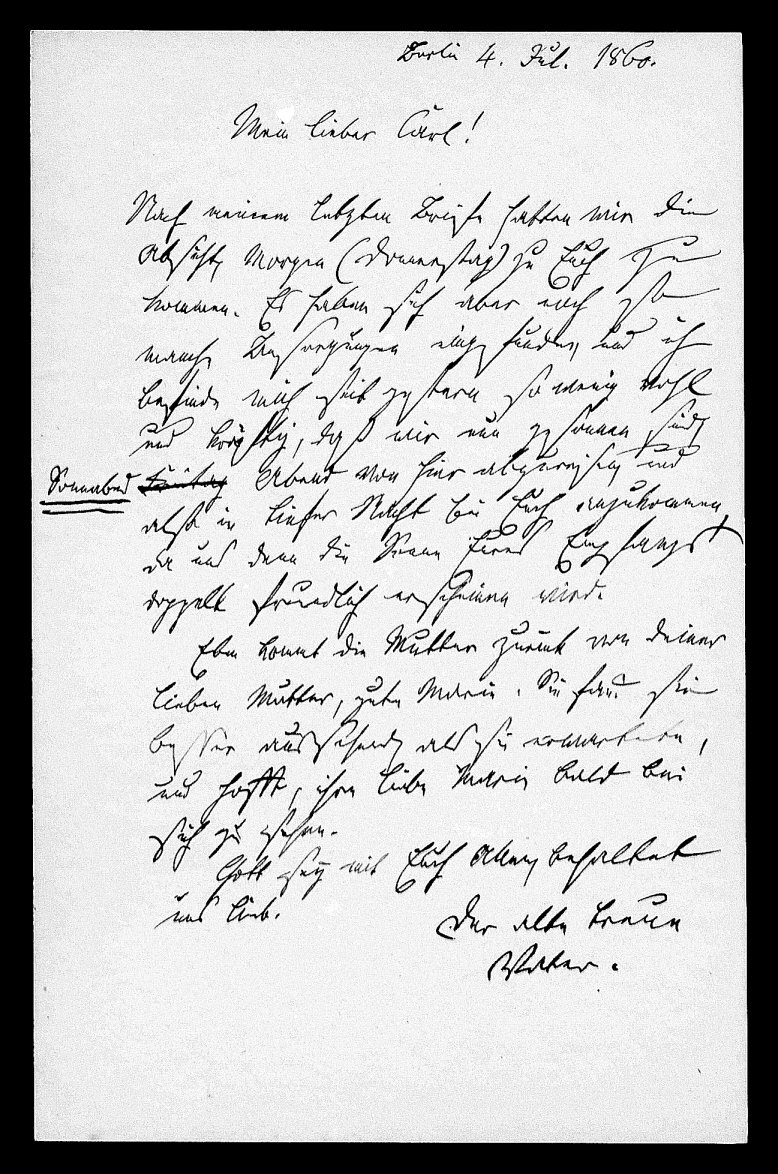 Berlin 4. Jul. 1860.
Mein lieber Carl!
Nach meinem letzten Briefe hatten wir die
Absicht, Morgen (Donnerstag) zu Euch zu
kommen. Es haben sich aber noch so
manche Besorgungen eingefunden, und ich
befinde mich seit gestern so wenig wohl
und kräftig, daß wir nun gesonnen sind,
Sonnabend Freitag Abend von hier abzureisen und
also in tiefer Nacht bei Euch anzukommen,
da uns dann die Sonne Eures Empfangs
doppelt freundlich erscheinen wird.
Eben kommt die Mutter zurück von deiner
lieben Mutter, gute Marie. Sie fand sie
besser aussehend, als sie erwartete,
und hofft, ihre liebe Marie bald bei
sich zu sehen.
Gott sey mit Euch Allen, behaltet
uns lieb.
Der alte treue
Vater.